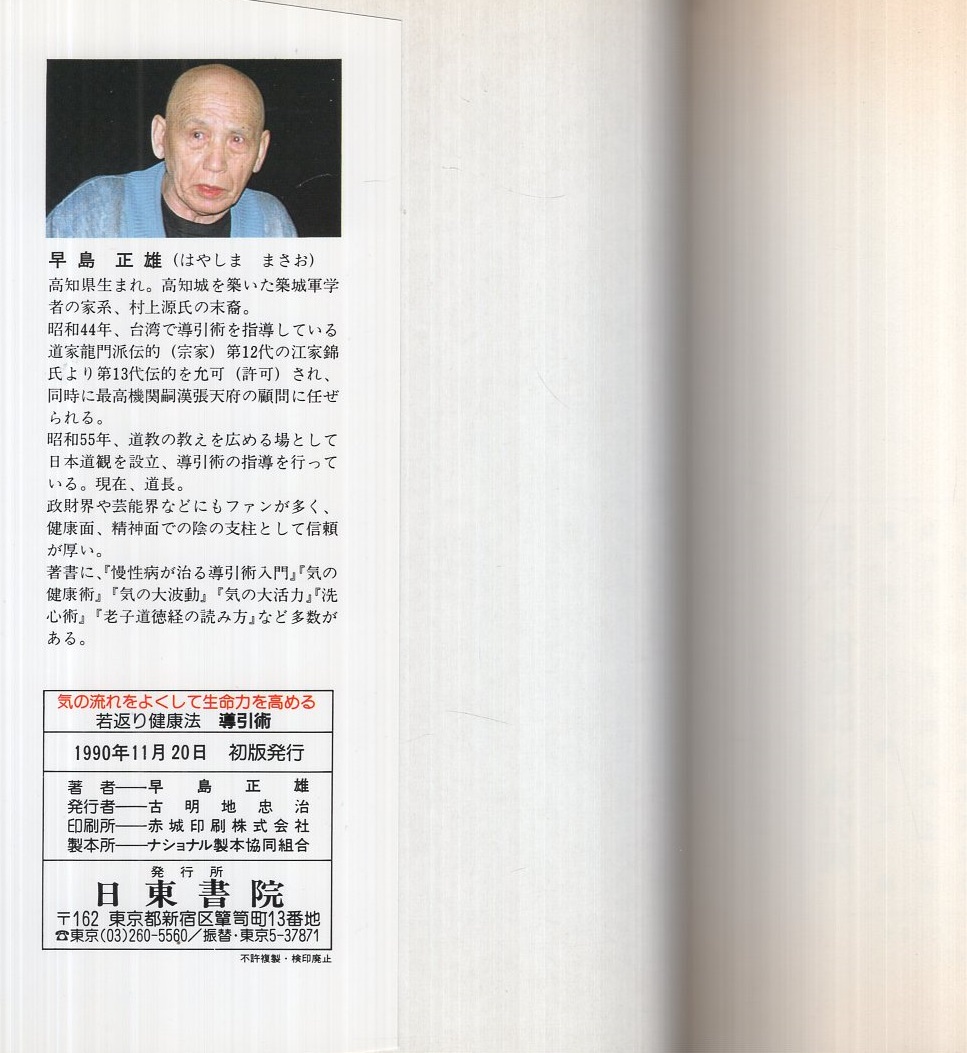 早島 正雄(はやしま まさお)
高知県生まれ。高知城を築いた築城軍学
者の家系、村上源氏の末裔。
昭和44年、台湾で導引術を指導している
道家龍門派伝的(宗家)第12代の江家錦
氏より第13代伝的を允可(許可)され、
同時に最高機関嗣漢張天府の顧問に任ぜ
られる。
昭和55年、道教の教えを広める場として
日本道観を設立、導引術の指導を行って
いる。現在、道長。
政財界や芸能界などにもファンが多く、
健康面、精神面での陰の支柱として信頼
が厚い。
著書に、『慢性病が治る導引術入門』『気の
健康術』『気の大波動』『気の大活力』『洗
心術』『老子道徳経の読み方』など多数が
ある。
気の流れをよくして生命力を高める
若返り健康法 導引術
1990年11月20日 初版発行
著 者――早島正雄
発行者――古明地忠治
印刷所――赤城印刷株式会社
製本所――ナショナル製本協同組合
発行所
日東書院
〒162 東京都新宿区簞笥町13番地
☎東京(03)260-5560/振替・東京5-37871
不許複製・検印廃止